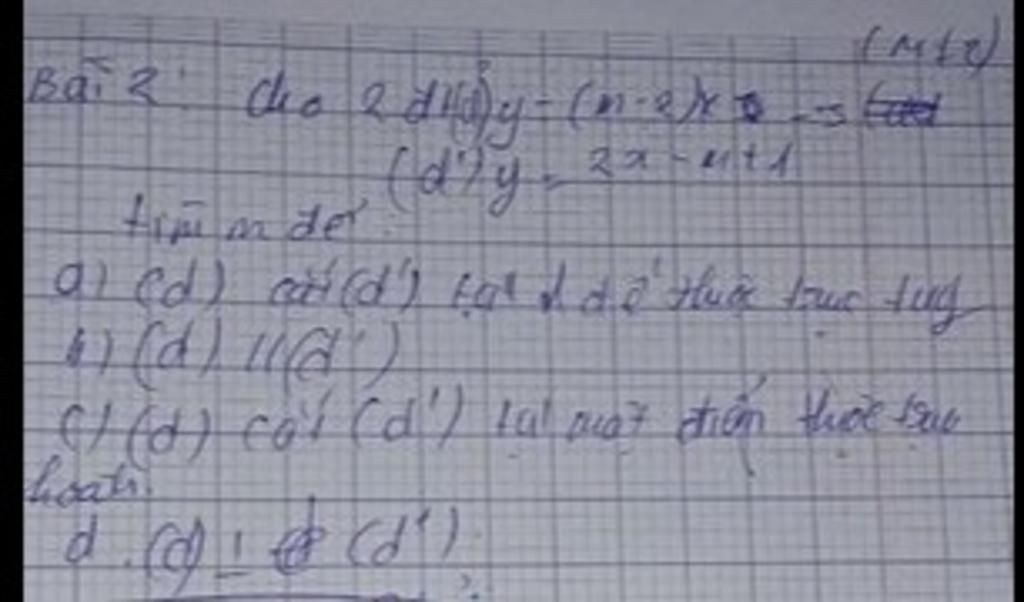 (m+2)
Bài 2: Cho 2 đt (d) y = (m-2)x
(d') y = 2x - m + 1
tìm m để:
a) (d) cắt (d') tại 1 đ' thuộc trục tung
b) (d) // (d')
c) (d) cắt (d') tại một điểm thuộc trục
hoành.
d. (d) ⊥ (d')